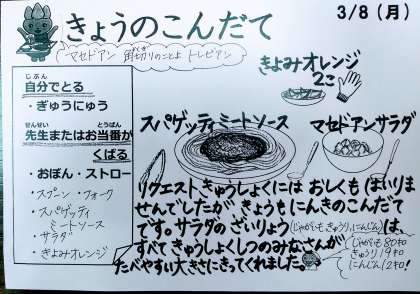 3/8(月)
きょうのこんだて
マセドアン 角切りのことよ トレビアン
きよみオレンジ
2こ
じぶん
自分でとる
・ぎゅうにゅう
せんせい とうばん
先生またはお当番が
くばる
・おぼん・ストロー
・スプーン フォーク
・スパゲッティ
ミートソース
・サラダ
・きよみオレンジ
スパゲッティミートソース
マセドアンサラダ
リクエストきゅうしょくには おしくも はいりま
せんでしたが きょうも にんきのこんだて
です。サラダの ざいりょう(じゃがいも きゅうり にんじん)は、
すべて きゅうしょくしつのみなさんが
たべやすい大きさにきってくれました。
じゃがいも 80キロ
きゅうり 19キロ
にんじん 12キロ!